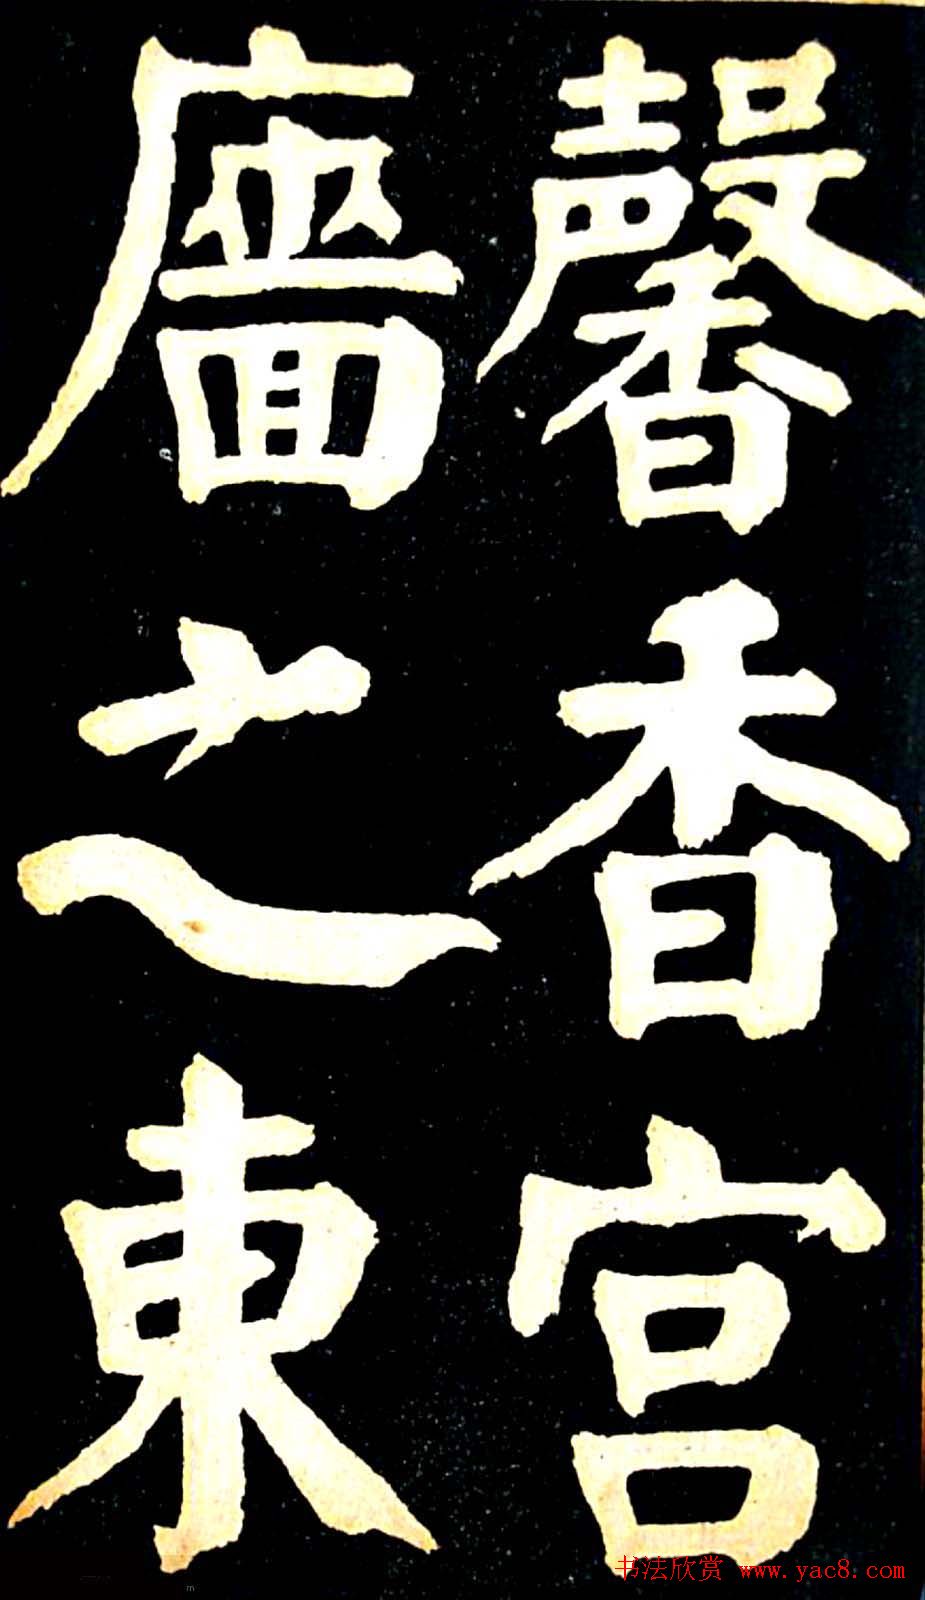 馨香宫
廧之東
书法欣赏 www.yac8.com